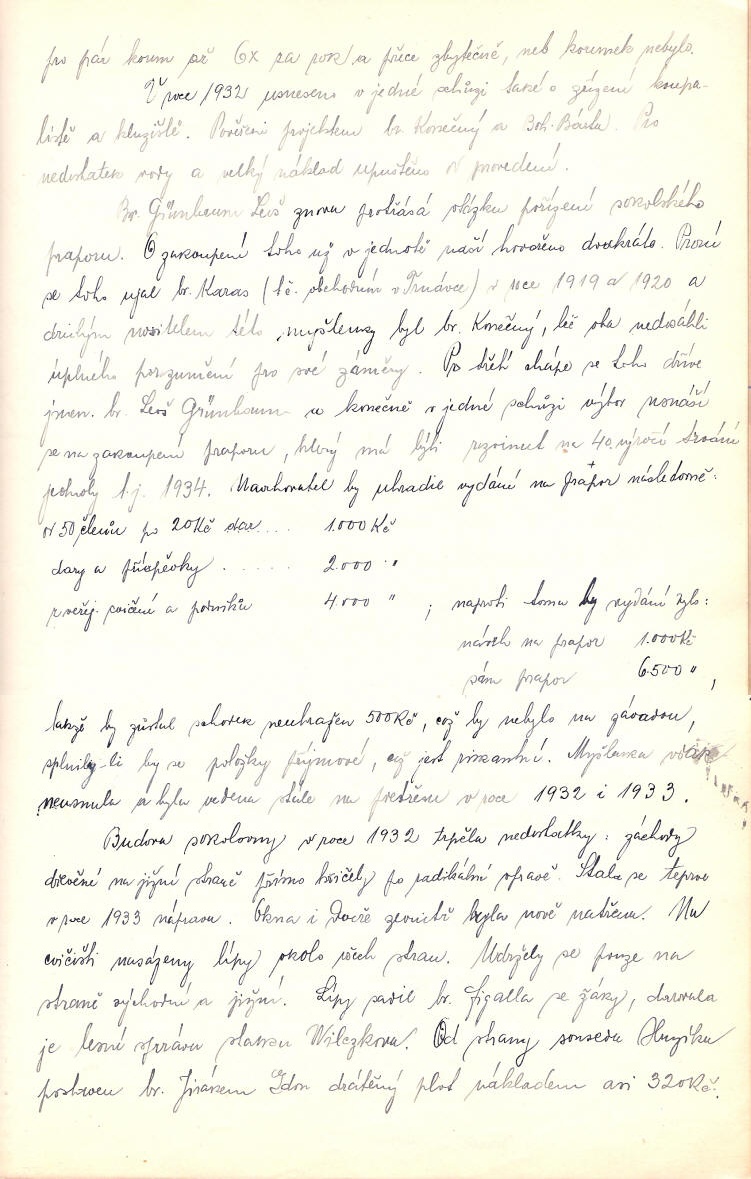 pro pár korun až 6x za rok a přece zbytečně, neb korunek nebylo.
V roce 1932 usneseno v jedné schůzi také o zřízení koupa-
liště a kluziště. Pověřeni projektem br. Konečný a Boh. Bárta. Pro
nedostatek vody a velký náklad upuštěno od provedení.
Br. Grünbaum Leoš znova protřásá otázku pořízení sokolského
praporu. O zakoupení toho už v jednotě naší hovořeno dvakráte. Prvně
se toho ujal br. Karas (t.č. obchodním v Trnávce) v roce 1919 a 1920 a
druhým nositelem této myšlenky byl br. Konečný, leč oba nedosáhli
úplného porozumění pro své záměry. Po třetí chápe se toho dříve
jmen. br. Leoš Grünbaum a konečně v jedné schůzi výbor usnáší
se na zakoupení praporu, který má býti rozvinut na 40. výročí trvání
jednoty t.j. 1934. Navrhovatel by uhradil vydání na prapor následovně:
od 50 členů po 20 Kč dar.... 1.000 Kč
dary a příspěvky ..... 2.000 "
z veřej. cvičení a podniků 4.000 " ; naproti tomu by vydání bylo:
návrh na prapor 1.000 Kč
sám prapor 6.500 " ,
takže by zůstal schodek neuhražen 500 Kč, což by nebylo na závadu,
splnily-li by se položky příjmové, což jest riskantní. Myšlenka však
neusnula a byla vedena stále na přetřesu v roce 1932 i 1933.
Budova sokolovny v roce 1932 trpěla nedostatky: záchody
dřevěné na jižní straně přímo křičely po radikální opravě. Stala se teprve
v roce 1933 náprava. Okna i dveře zevnitř byla nově natřena. Na
cvičišti nasázeny lípy okolo všech stran. Udržely se pouze na
straně východní a jižní. Lípy sadil br. Figalla se žáky, darovala
je lesní správa statku Wilczkova. Od strany souseda
postaven br. Jiráskem Edm drátěný plot nákladem asi 320 Kč.